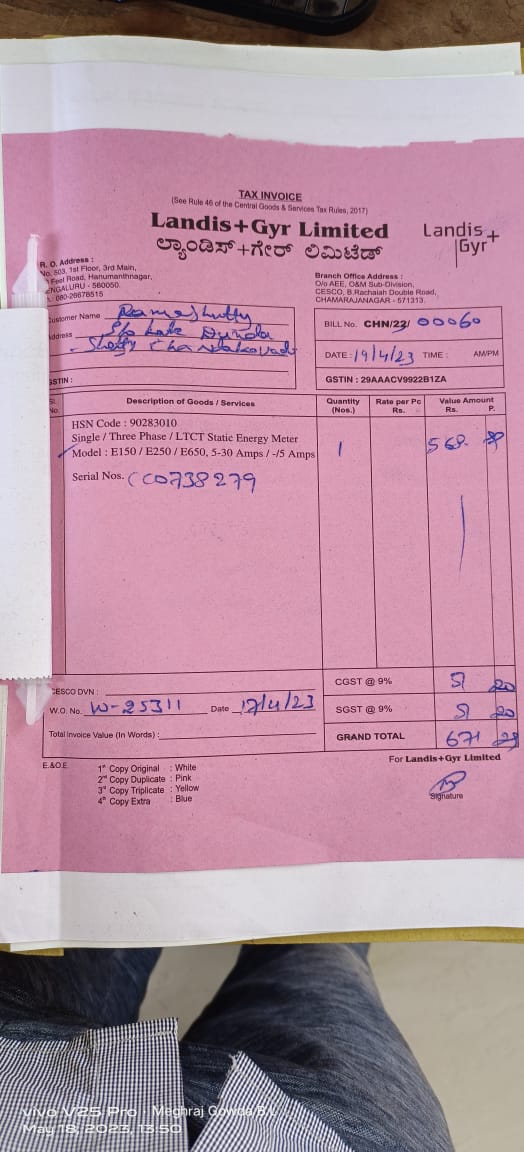 TAX INVOICE
(See Rule 46 of the Central Goods & Services Tax Rules, 2017)
Landis+Gyr Limited
ಲ್ಯಾಂಡಿಸ್+ಗೇರ್ ಲಿಮಿಟೆಡ್
Landis+
Gyr
R. O. Address :
No. 503, 1st Floor, 3rd Main,
Feet Road, Hanumanthnagar,
ENGALURU - 560050.
: 080-26678515
Branch Office Address :
O/o AEE, O&M Sub-Division,
CESCO, B.Rachaiah Double Road,
CHAMARAJANAGAR - 571313.
Customer Name Rameshutty
Address S/o Late Dunda
Shetty
GSTIN :
BILL No. CHN/22/ 00060
DATE : 19/4/23 TIME : AM/PM
GSTIN : 29AAACV9922B1ZA
Sl. No. Description of Goods / Services Quantity (Nos.) Rate per Pc Rs. Value Amount Rs. P.
HSN Code : 90283010
Single / Three Phase / LTCT Static Energy Meter
Model : E150 / E250 / E650, 5-30 Amps / -/5 Amps 1 568
Serial Nos. CC0738279
CGST @ 9% 51 20
SGST @ 9% 51 20
GRAND TOTAL 671
CESCO DVN :
W.O. No. W-25311 Date 17/4/23
Total Invoice Value (In Words) :
E.&O.E
1st Copy Original : White
2nd Copy Duplicate : Pink
3rd Copy Triplicate : Yellow
4th Copy Extra : Blue
For Landis+Gyr Limited
Signature
vivo V25 Pro · Meghraj Gowda B.L
May 18, 2023, 13:50